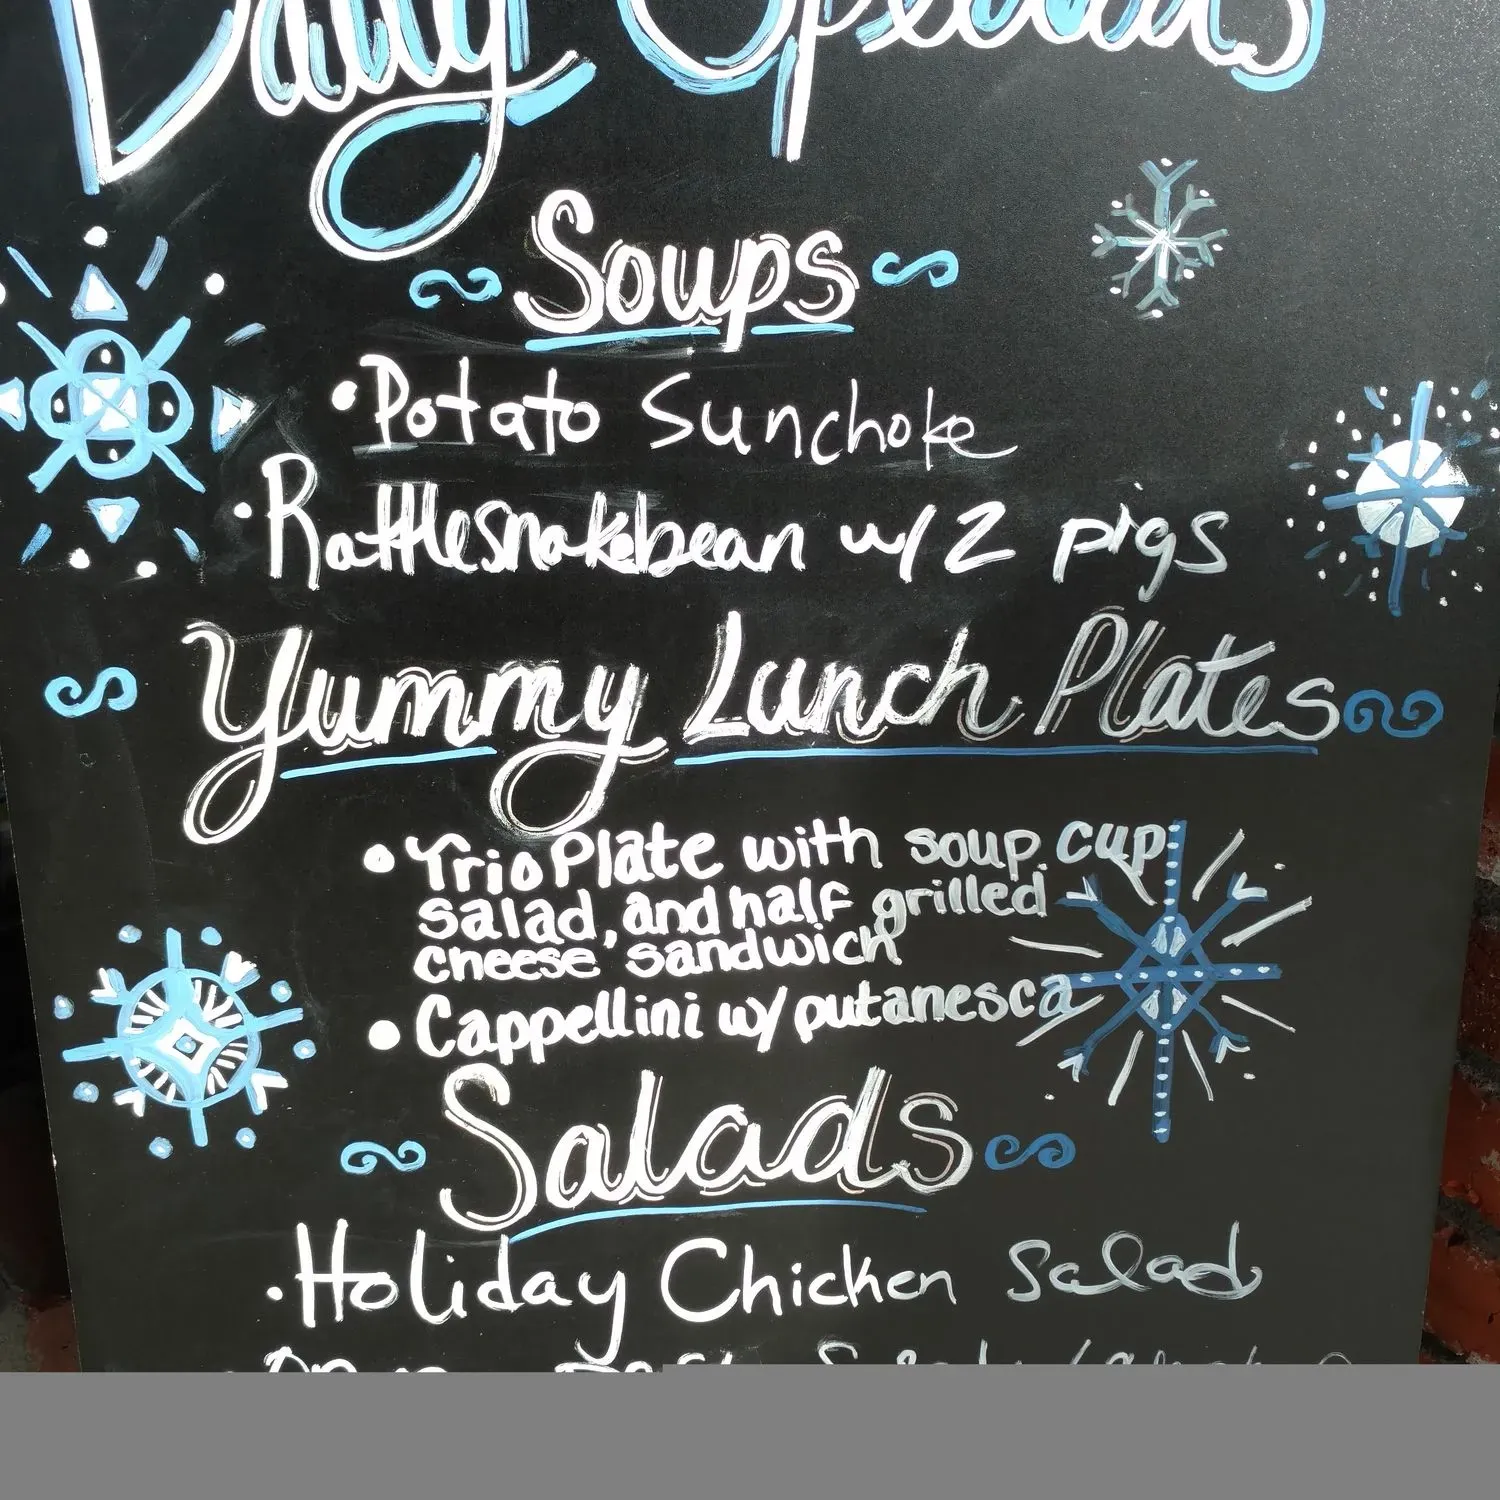 Daily Specials
Soups
• Potato Sunchoke
• Rattlesnakebean w/ 2 pigs
Yummy Lunch Plates
• Trio Plate with soup cup
salad, and half grilled
cheese sandwich
• Cappellini w/ putanesca
Salads
• Holiday Chicken Salad